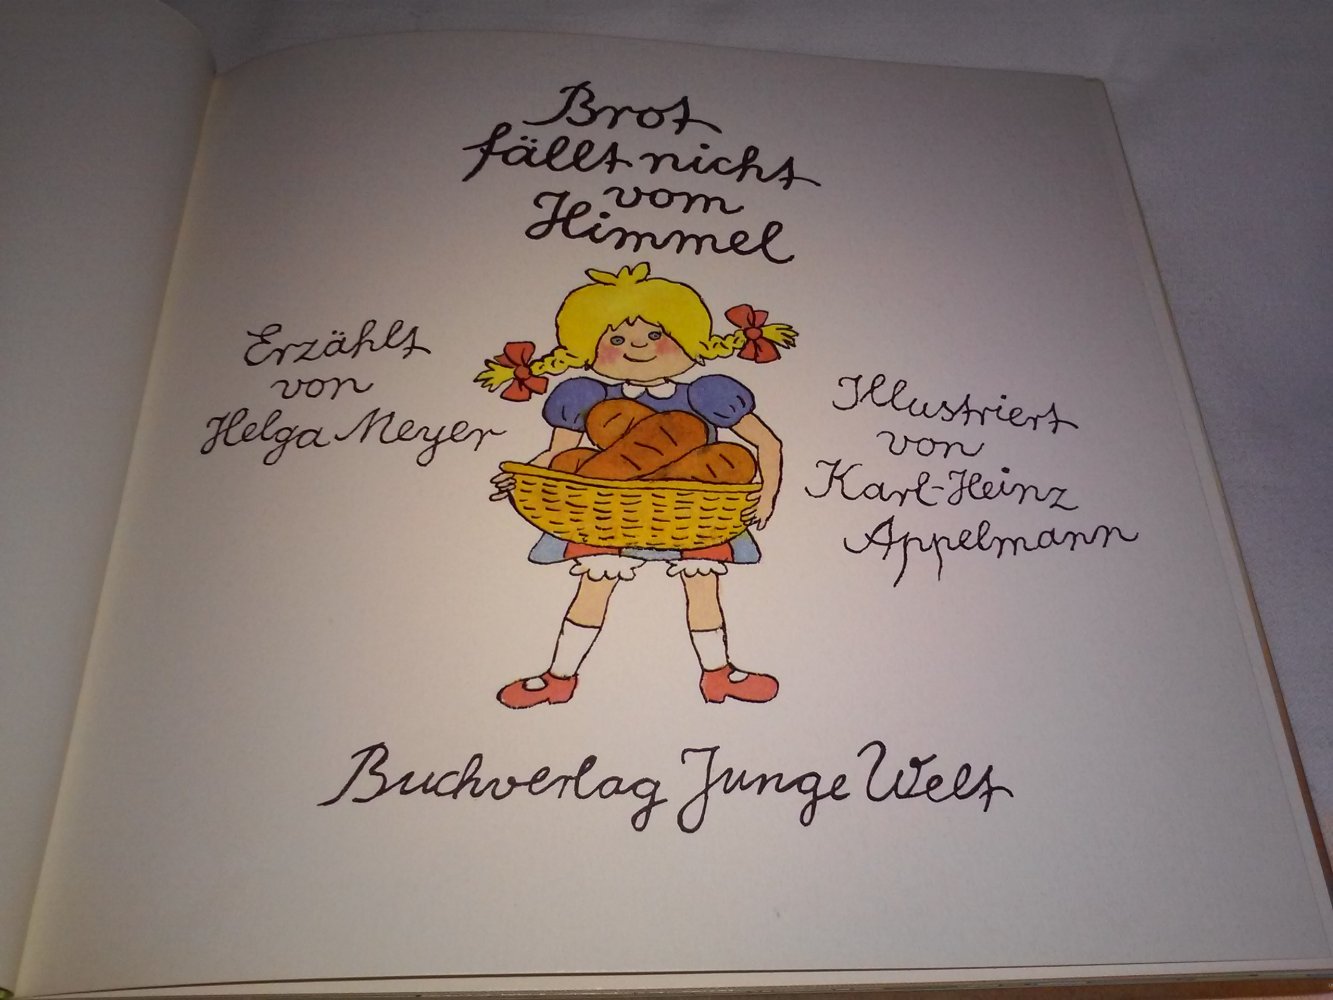 Brot
fällt nicht
vom
Himmel
Erzählt
von
Helga Meyer
Illustriert
von
Karl-Heinz
Appelmann
Buchverlag Junge Welt